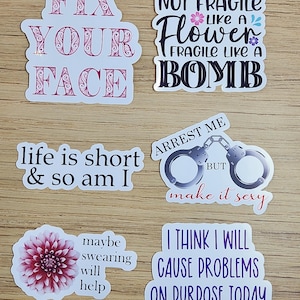 FIX
YOUR
FACE
NOT FRAGILE
LIKE A
Flower
FRAGILE LIKE A
BOMB
life is short
& so am I
ARREST ME
BUT
make it sexy
maybe
swearing
will
help
I THINK I WILL
CAUSE PROBLEMS
ON PURPOSE TODAY